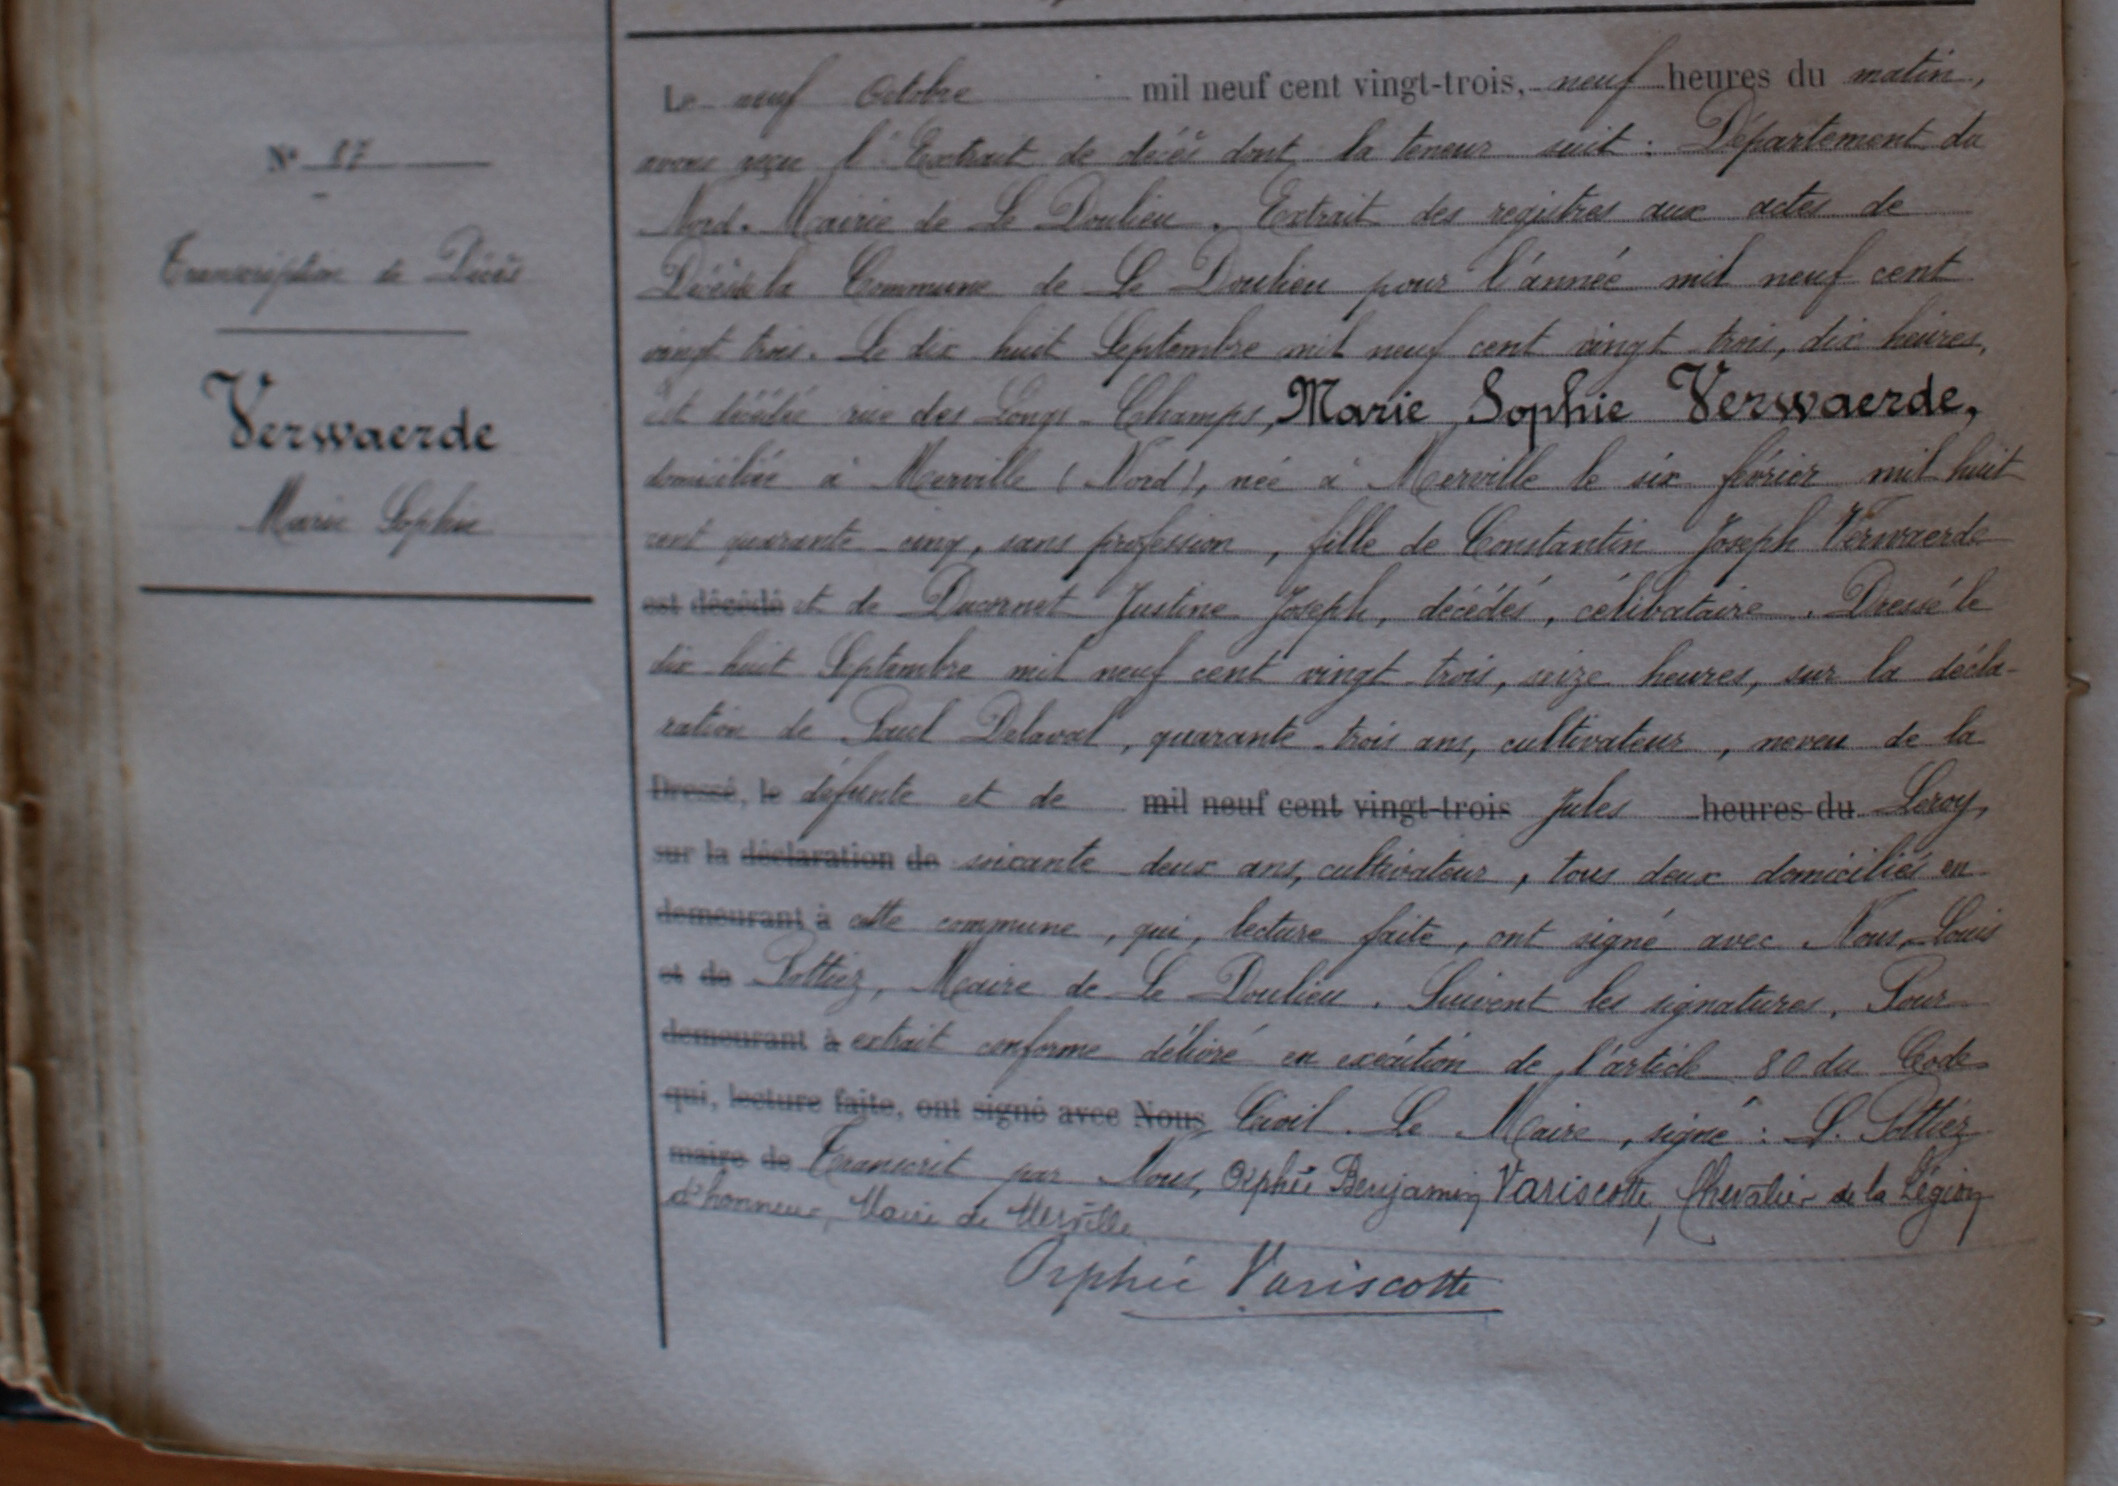 N° 87
Transcription de Décès
Verwaerde
Marie Sophie
Le neuf Octobre mil neuf cent vingt-trois, neuf heures du matin,
avons reçu l'Extrait de décès dont la teneur suit : Département du
Nord. Mairie de Le Doulieu. Extrait des registres aux actes de
Décès de la Commune de Le Doulieu pour l'année mil neuf cent
vingt trois. Le dix huit Septembre mil neuf cent vingt trois, dix heures,
est décédée rue des Longs-Champs, Marie Sophie Verwaerde,
domiciliée à Merville (Nord), née à Merville le six février mil huit
cent quarante-cinq, sans profession, fille de Constantin Joseph Verwaerde
est décédé et de Ducornet Justine Joseph, décédés, célibataire. Dressé le
dix huit Septembre mil neuf cent vingt trois, seize heures, sur la décla-
ration de Paul Delaval, quarante-trois ans, cultivateur, neveu de la
Dressé, le défunte et de mil neuf cent vingt-trois Jules heures du Leroy,
sur la déclaration de soixante deux ans, cultivateur, tous deux domiciliés en
demeurant à cette commune, qui, lecture faite, ont signé avec Nous, Louis
et de Pottiez, Maire de Le Doulieu. Suivent les signatures. Pour
demeurant à extrait conforme délivré en exécution de l'article 80 du Code
qui, lecture faite, ont signé avec Nous Civil. Le Maire, signé : L. Pottiez
maire de Transcrit par Nous, Orphée Benjamin Variscotte, Chevalier de la Légion
d'honneur, Maire de Merville
Orphée Variscotte